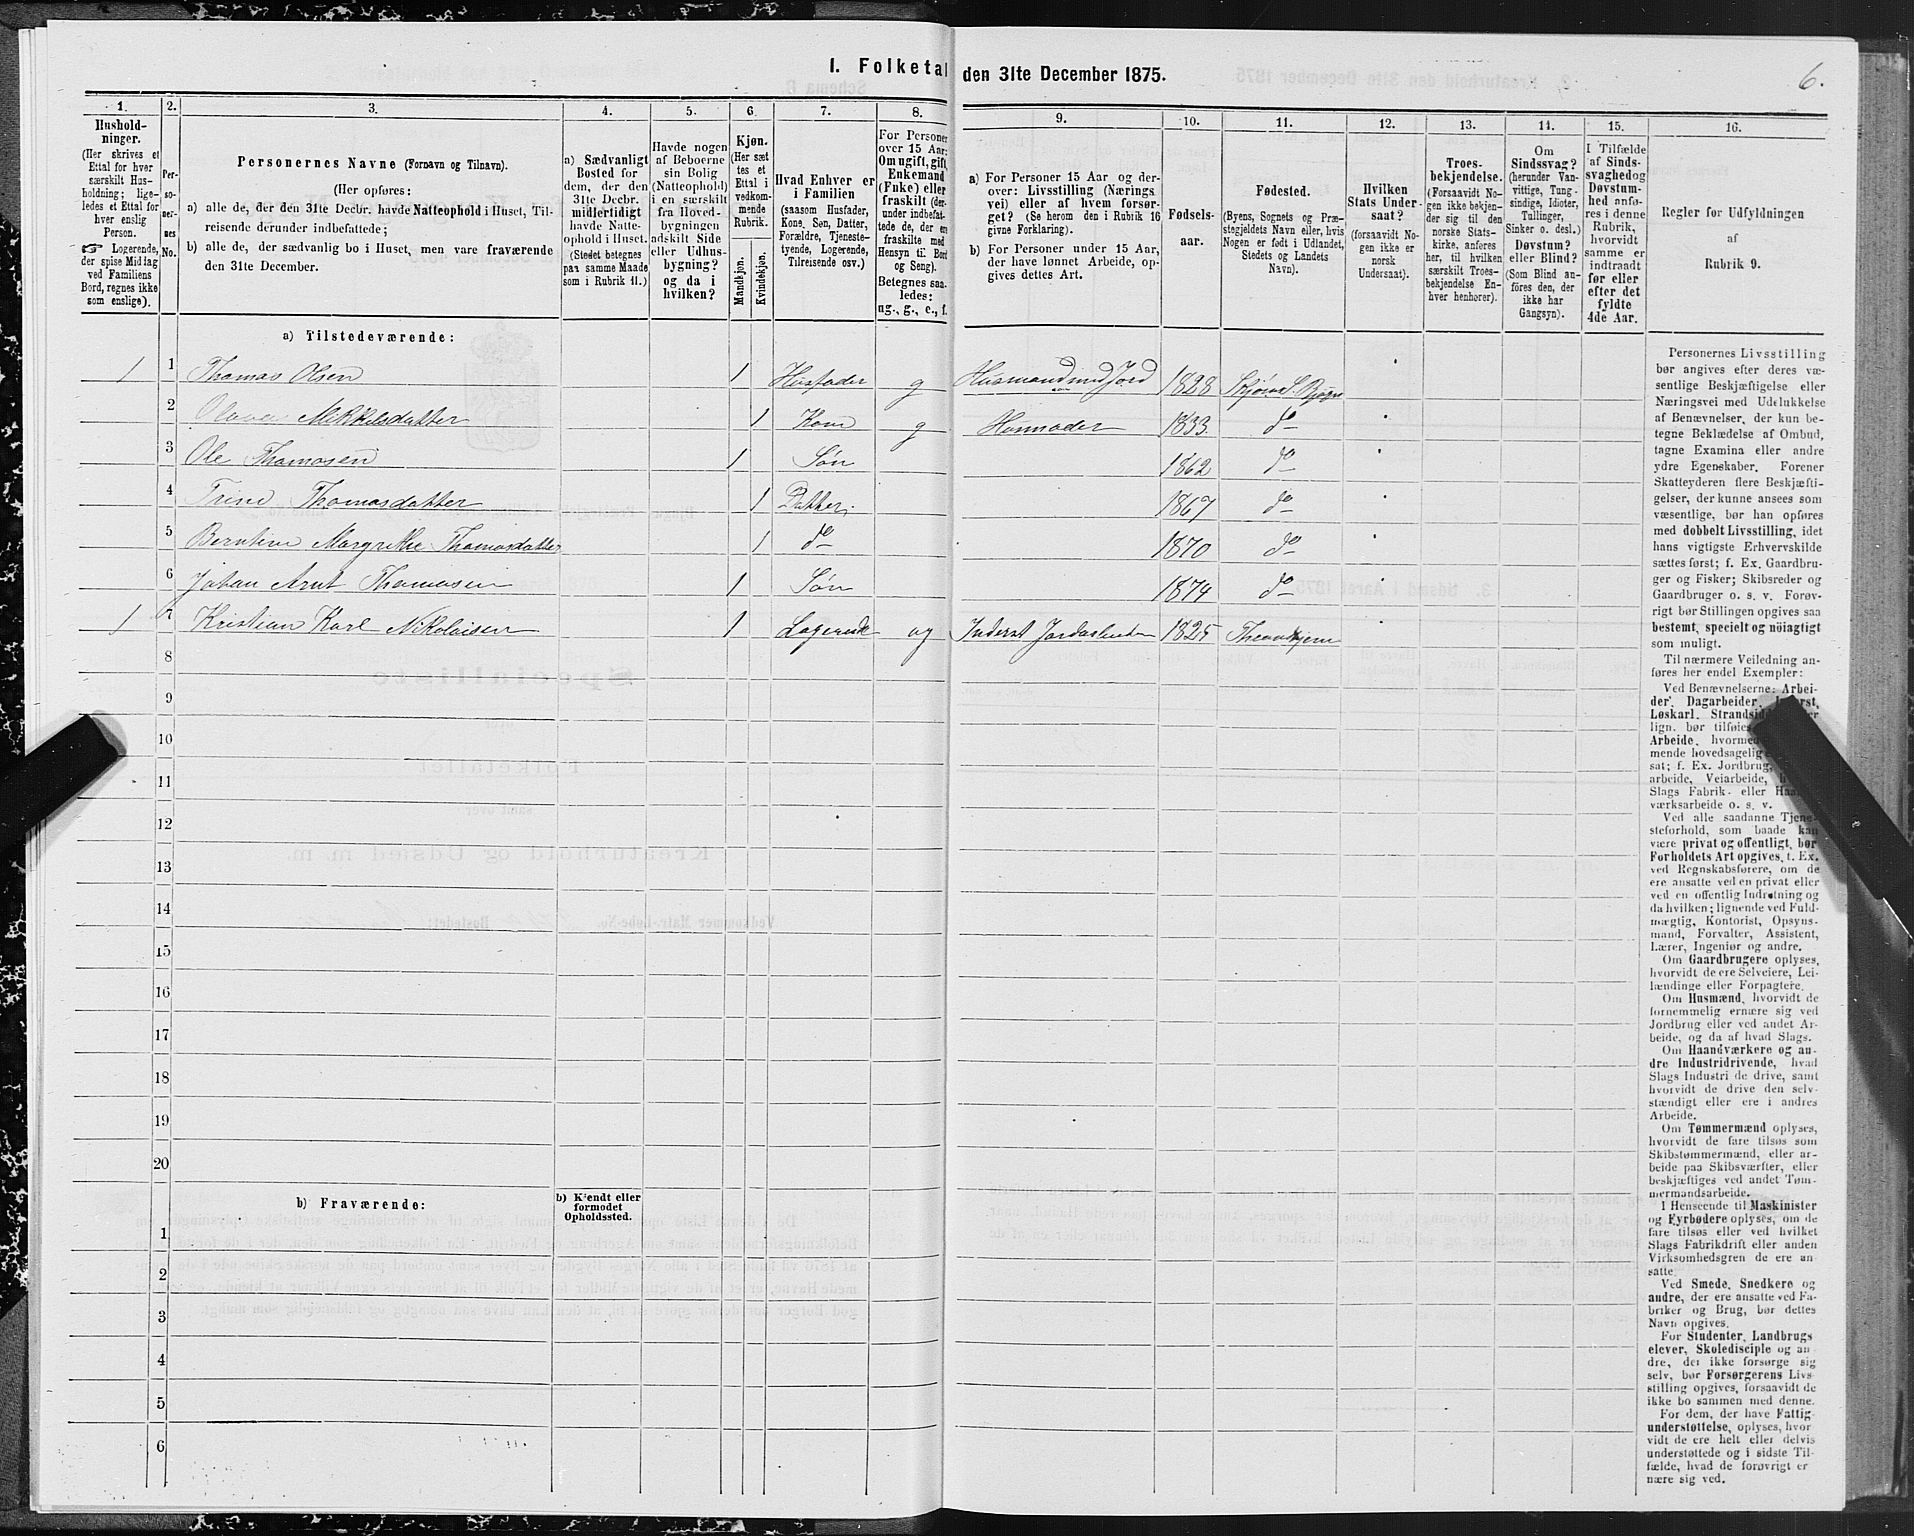 1. Folketal den 31te December 1875.
6.
1. 2. 3. 4. 5. 6. 7. 8. 9. 10. 11. 12. 13. 14. 15. 16.
Hushold-
ninger.
(Her skrives et
Ettal for hver
særskilt Hus-
holdning; lige-
ledes et Ettal for
hver enslig
Person.
☞ Logerende,
der spise Midlag
ved Familiens
Bord, regnes ikke
som enslige).
Per-
so-
ner-
nes
No.
Personernes Navne (Fornavn og Tilnavn).
(Her opføres:
a) alle de, der den 31te Decbr. havde Natteophold i Huset, Til-
reisende derunder indbefattede;
b) alle de, der sædvanlig bo i Huset, men vare fraværende
den 31te December.
a) Sædvanligt
Bosted for
dem, der den
31te Decbr.
midlertidigt
havde Natte-
ophold i Huset.
(Stedet betegnes
paa samme Maade
som i Rubrik 11.)
Havde nogen
af Beboerne
sin Bolig
(Natteophold)
i en særskilt
fra Hoved-
bygningen
adskilt Side
eller Udhus-
bygning?
og da i
hvilken?
Kjøn.
(Her sæt
tes et
Ettal i
vedkom-
mende
Rubrik.
Mandkjøn.
Kvindekjøn.
Hvad Enhver er
i Familien
(saasom Husfader,
Kone, Søn, Datter,
Forældre, Tjeneste-
tyende, Logerende,
Tilreisende osv.)
For Personer
over 15 Aar:
Om ugift, gift,
Enkemand
(Enke) eller
fraskilt (der-
under indbefat-
tede de, der ere
fraskilte med
Hensyn til Bord
og Seng).
Betegnes saa-
ledes:
ug., g., e., f.
a) For Personer 15 Aar og der-
over: Livsstilling (Nærings
vei) eller af hvem forsør-
get? (Se herom den i Rubrik 16
givne Forklaring).
b) For Personer under 15 Aar,
der have lønnet Arbeide, op-
gives dettes Art.
Fødsels-
aar.
Fødested.
(Byens, Sognets og Præ-
stegjeldets Navn eller, hvis
Nogen er født i Udlandet,
Stedets og Landets
Navn).
Hvilken
Stats Under-
saat?
(forsaavidt No-
gen ikke er
norsk
Undersaat).
Troes-
bekjendelse.
(Forsaavidt No-
gen ikke bekjen-
der sig til den
norske Stats-
kirke, anføres
her, til hvilken
særskilt Troes-
bekjendelse En-
hver henhører).
Om
Sindssvag?
(herunder Van-
vittige, Tung-
sindige, Idioter,
Tullinger,
Sinker o. desl.)
Døvstum?
eller Blind?
(Som Blind an-
føres den, der
ikke har
Gangsyn).
I Tilfælde
af Sinds-
svaghed og
Døvstum-
hed anfø-
res i denne
Rubrik,
hvorvidt
samme er
indtraadt
før eller
efter det
fyldte
4de Aar.
Regler for Udfyldningen
af
Rubrik 9.
a) Tilstedeværende:
1 1 Thomas Olsen 1 Husfader g Husmand med Jord 1828 Skjørn S. Bjugn
2 Olava Mikkelsdatter 1 Kone g Husmoder 1833 do
3 Ole Thomasen 1 Søn 1862 do
4 Trine Thomasdatter 1 Datter 1867 do
5 Berntine Margrethe Thomasdatter 1 do 1870 do
6 Johan Arnt Thomasen 1 Søn 1874 do
1 7 Kristian Karl Nikolaisen 1 Logerende ug Inderst Jordarbeider 1825 Throndhjem
8
9
10
11
12
13
14
15
16
17
18
19
20
b) Fraværende:
b) Kjendt eller
formodet
Opholdssted.
1
2
3
4
5
6
Personernes Livsstilling
bør angives efter deres væ-
sentlige Beskjæftigelse eller
Næringsvei med Udelukkelse
af Benævnelser, der kun be-
tegne Beklædelse af Ombud,
tagne Examina eller andre
ydre Egenskaber. Forener
Skatteyderen flere Beskjæfti-
gelser, der kunne ansees som
væsentlige, bør han opføres
med dobbelt Livsstilling, idet
hans vigtigste Erhvervskilde
sættes først; f. Ex. Gaardbru-
ger og Fisker; Skibsreder og
Gaardbruger o. s. v. Forøv-
rigt bør Stillingen opgives saa
bestemt, specielt og nöiagtigt
som muligt.
Til nærmere Veiledning an-
føres her endel Exempler:
Ved Benævnelserne: Arbei-
der, Dagarbeider,
Løskarl,
lign. bør tilføies
Arbeide,
mende hovedsagelig
sat; f. Ex. Jordbrug,
arbeide, Veiarbeide,
Slags Fabrik- eller
værksarbeide o. s. v.
Ved alle saadanne Tjene-
steforhold, som baade kan
være privat og offentligt, bør
Forholdets Art opgives, f. Ex.
ved Regnskabsførere, om de
ere ansatte ved en privat eller
ved en offentlig Indretning og
da hvilken; lignende ved Fuld-
mægtig, Kontorist, Opsyns-
mand, Forvalter, Assistent,
Lærer, Ingeniør og andre.
Om Gaardbrugere oplyses,
hvorvidt de ere Selveiere, Lei-
lændinge eller Forpagtere.
Om Husmænd, hvorvidt de
fornemmelig ernære sig ved
Jordbrug eller ved andet Ar-
beide, og da af hvad Slags.
Om Haandværkere og an-
dre Industridrivende, hvad
Slags Industri de drive, samt
hvorvidt de drive den selv-
stændigt eller ere i andres
Arbeide.
Om Tømmermænd oplyses,
hvorvidt de fare tilsøs som
Skibstømmermænd, eller ar-
beide paa Skibsværfter, eller
beskjæftiges ved andet Tøm-
mermandsarbeide.
I Henseende til Maskinister
og Fyrbødere oplyses, om de
fare tilsøs eller ved hvilket
Slags Fabrikdrift eller anden
Virksomhedsgren de ere an-
satte.
Ved Smede, Snedkere og
andre, der ere ansatte ved Fa-
briker og Brug, bør dettes
Navn opgives.
For Studenter, Landbrugs
elever, Skoledisciple og an
dre, der ikke forsørge sig
selv, bør Forsørgerens Livs-
stilling opgives, forsaavidt de
ikke bo sammen med denne.
For dem, der have Fattig-
understøttelse, oplyses, hvor
vidt de ere helt eller delvis
understøttede og i sidste Til-
fælde, hvad de forøvrigt er
nære sig ved.